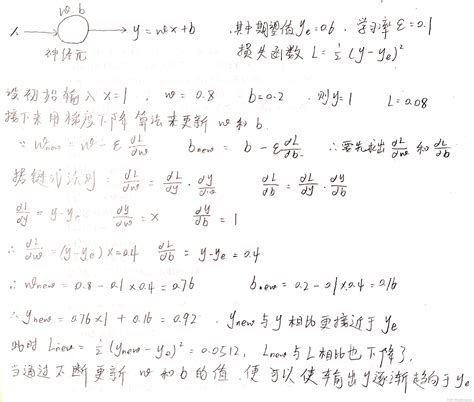 w. b
x → ○ → y = wx + b ,其中期望值 ye = 0.6 , 学习率 ε = 0.1
神经元 损失函数 L = ½ (y - ye)²
设初始输入 x = 1 , w = 0.8 b = 0.2 , 则 y = 1 L = 0.08
接下来用梯度下降算法来更新 w 和 b.
∵ wnew = w - ε dL/dw bnew = b - ε dL/db . ∴ 要先求出 dL/dw 和 dL/db
据链式法则: dL/dw = dL/dy · dy/dw dL/db = dL/dy · dy/db
dL/dy = y - ye dy/dw = x dy/db = 1
∴ dL/dw = (y - ye) x = 0.4 dL/db = y - ye = 0.4
∴ wnew = 0.8 - 0.1 x 0.4 = 0.76 bnew = 0.2 - 0.1 x 0.4 = 0.16
∴ ynew = 0.76 x 1 + 0.16 = 0.92 . ynew 与 y 相比更接近于 ye
此时 Lnew = ½ (ynew - ye)² = 0.0512, Lnew 与 L 相比也下降了,
当通过不断更新 w 和 b 的值, 便可以使得输出 y 逐渐趋向于 ye